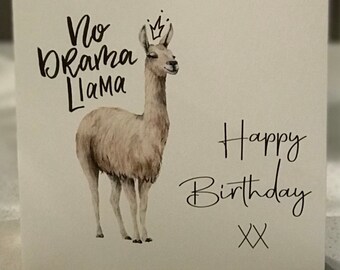 No
DRama
Llama
Happy
Birthday
XX